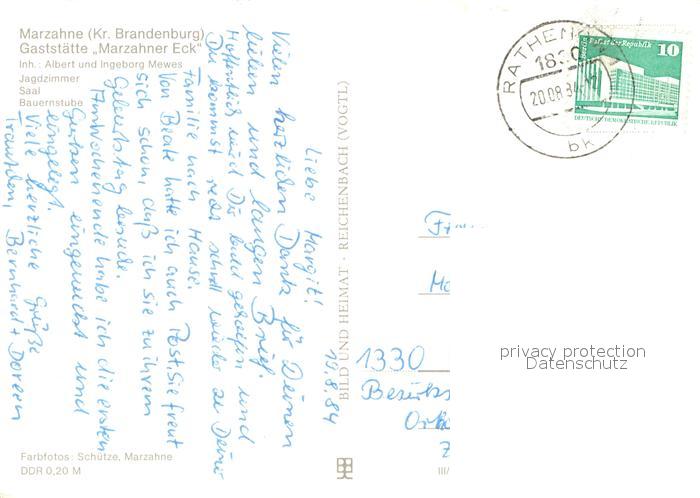 Marzahne (Kr. Brandenburg)
Gaststätte „Marzahner Eck"
Inh.: Albert und Ingeborg Mewes
Jagdzimmer
Saal
Bauernstube
19.8.84
Liebe Margit!
Vielen herzlichen Dank für Deinen
lieben und langen Brief.
Hoffentlich wird Dir bald geholfen und
Du kommst recht schnell wieder zu Deiner
Familie nach Hause.
Von Beate hatte ich auch Post. Sie freut
sich schon, daß ich sie zu ihrem
Geburtstag besuche.
Am Wochenende habe ich die ersten
Gurken eingeweckt und
eingelegt.
Viele herzliche Grüße
Bernhard + Doreen
Farbfotos: Schütze, Marzahne
DDR 0,20 M
BILD UND HEIMAT · REICHENBACH (VOGTL)
III/
RATHENOW
1830
20.08.84
bk
Berlin Palast der Republik
10
DEUTSCHE DEMOKRATISCHE REPUBLIK
1330
Bezirks
privacy protection
Datenschutz